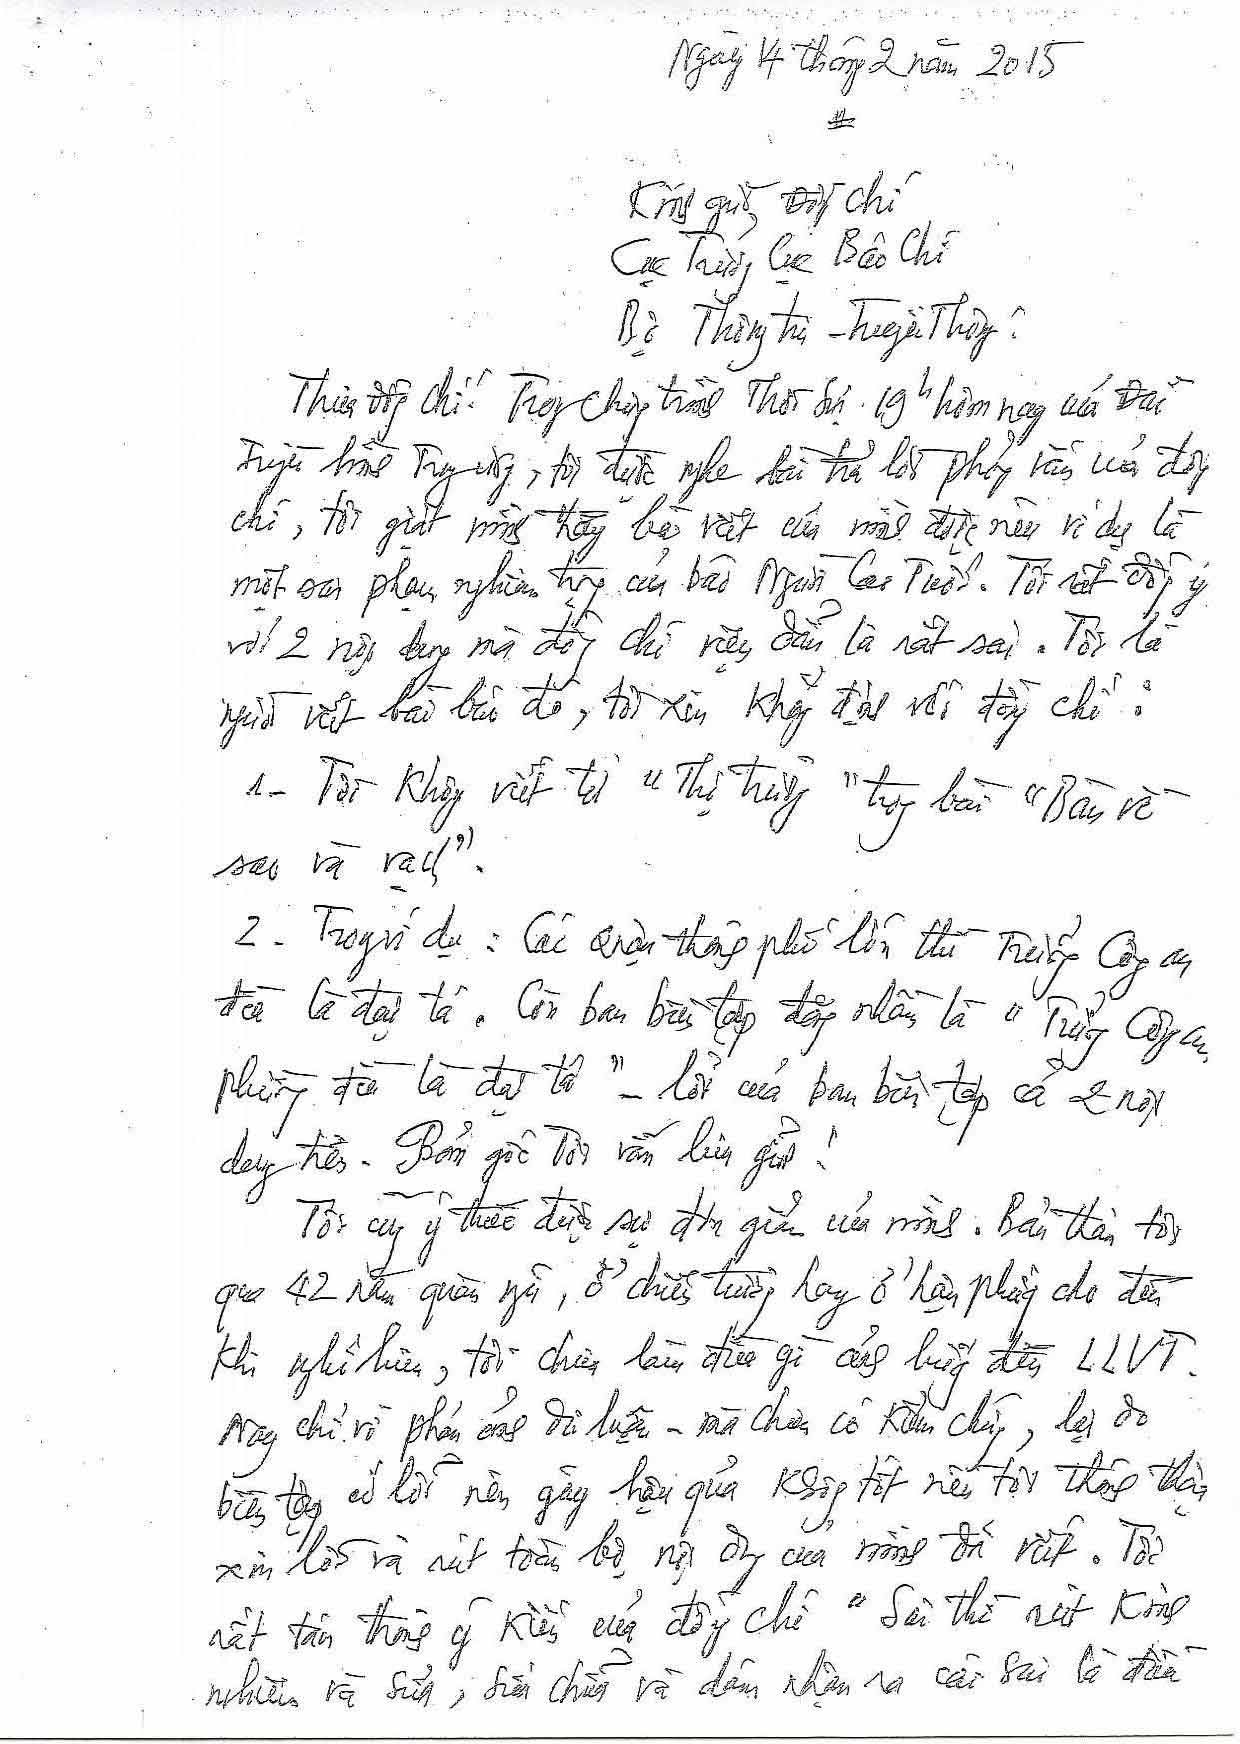 Ngày 4 tháng 2 năm 2015
Kính gửi, Đồng chí
Cục Trưởng Cục Báo Chí
Bộ Thông tin - Truyền Thông:
Thưa đồng chí! Trong chương trình Thời sự 19h hôm nay của Đài
Truyền hình Trung ương, tôi được nghe bài trả lời phỏng vấn của đồng
chí, tôi giật mình thấy bài viết của mình được nêu ví dụ là
một sai phạm nghiêm trọng của báo Người Cao Tuổi. Tôi rất đồng ý
với 2 nội dung mà đồng chí viện dẫn là rất sai. Tôi là
người viết bài báo đó, tôi xin khẳng định với đồng chí:
1- Tôi không viết từ "Thị trường" trong bài "Bàn về
sao và vạch".
2- Trong ví dụ: Các Quận thành phố lớn thì Trưởng Công an
đều là đại tá. Còn ban biên tập đăng nhầm là "Trưởng Công an
phường đều là đại tá" - lỗi của ban biên tập cả 2 nội
dung trên. Bản gốc tôi vẫn lưu giữ!
Tôi cũng ý thức được sự đơn giản của mình. Bản thân tôi
qua 42 năm quân ngũ, ở chiến trường hay ở hậu phương cho đến
khi nghỉ hưu, tôi chưa làm điều gì ảnh hưởng đến LLVT.
Nay chỉ vì phản ánh dư luận - mà chưa có kiểm chứng, lại do
biên tập có lỗi nên gây hậu quả không tốt nên tôi thành thật
xin lỗi và rút toàn bộ nội dung của mình đã viết. Tôi
rất tán thành ý kiến của đồng chí "Sai thì rút kinh
nghiệm và sửa, sửa chữa và dám nhận ra cái sai là điều